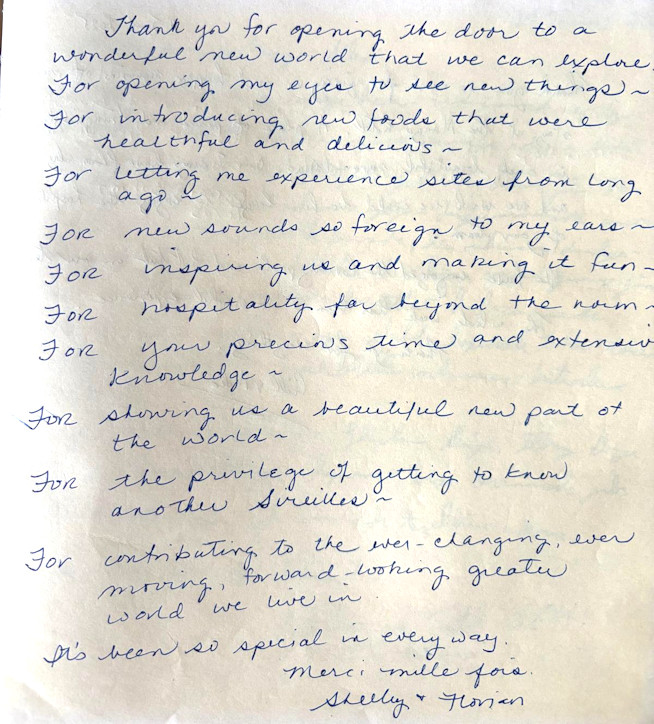 Thank you for opening the door to a
wonderful new world that we can explore.
For opening my eyes to see new things~
For introducing new foods that were
healthful and delicious~
For letting me experience sites from long
ago~
For new sounds so foreign to my ears~
For inspiring us and making it fun~
For hospitality far beyond the norm~
For your precious time and extensiv
knowledge~
For showing us a beautiful new part of
the world~
For the privilege of getting to know
another ~
For contributing to the ever-changing, ever
moving, forward-looking greater
world we live in.
It's been so special in every way.
Merci mille fois.
Shelley + Florian